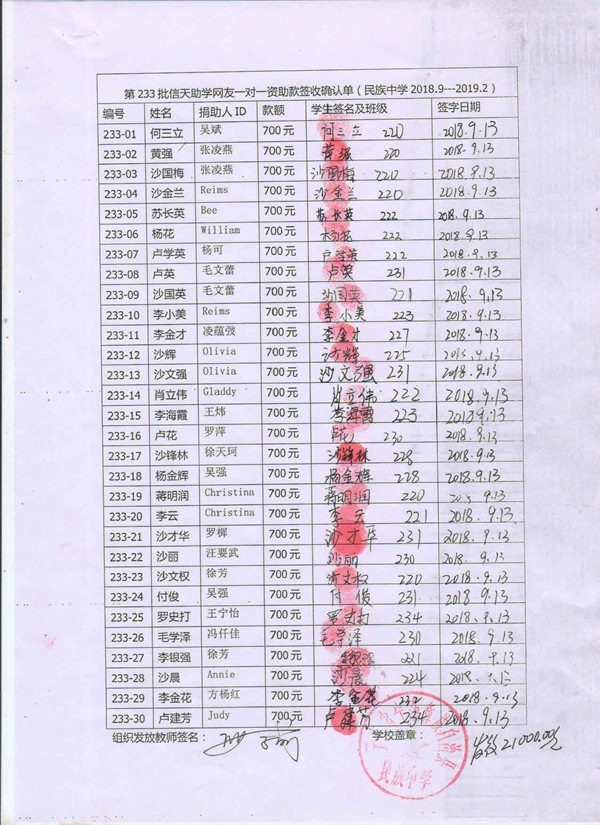 第 233 批信天助学网友一对一资助款签收确认单（民族中学 2018.9---2019.2）
编号 姓名 捐助人 ID 款额 学生签名及班级 签字日期
233-01 何三立 吴斌 700 元 何三立 220 2018.9.13
233-02 黄强 张凌燕 700 元 黄强 220 2018.9.13
233-03 沙国梅 张凌燕 700 元 沙国梅 220 2018.9.13
233-04 沙金兰 Reims 700 元 沙金兰 220 2018.9.13
233-05 苏长英 Bee 700 元 苏长英 222 2018.9.13
233-06 杨花 William 700 元 杨花 222 2018.9.13
233-07 卢学英 杨可 700 元 卢学英 222 2018.9.13
233-08 卢英 毛文蕾 700 元 卢英 231 2018.9.13
233-09 沙国英 毛文蕾 700 元 沙国英 221 2018.9.13
233-10 李小美 Reims 700 元 李小美 223 2018.9.13
233-11 李金才 凌蕴弢 700 元 李金才 227 2018.9.13
233-12 沙辉 Olivia 700 元 沙辉 225 2018.9.13
233-13 沙文强 Olivia 700 元 沙文强 231 2018.9.13
233-14 肖立伟 Gladdy 700 元 肖立伟 222 2018.9.13
233-15 李海霞 王炜 700 元 李海霞 223 2018.9.13
233-16 卢花 罗萍 700 元 卢花 230 2018.9.13
233-17 沙锋林 徐天珂 700 元 沙锋林 228 2018.9.13
233-18 杨金辉 吴强 700 元 杨金辉 228 2018.9.13
233-19 蒋明润 Christina 700 元 蒋明润 220 2018.9.13
233-20 李云 Christina 700 元 李云 221 2018.9.13
233-21 沙才华 罗樨 700 元 沙才华 231 2018.9.13
233-22 沙丽 汪要武 700 元 沙丽 230 2018.9.13
233-23 沙文权 徐芳 700 元 沙文权 220 2018.9.13
233-24 付俊 吴强 700 元 付俊 231 2018.9.13
233-25 罗史打 王宁怡 700 元 罗史打 234 2018.9.13
233-26 毛学泽 冯仟佳 700 元 毛学泽 230 2018.9.13
233-27 李银强 徐芳 700 元 221 2018.9.13
233-28 沙晨 Annie 700 元 沙晨 224 2018.9.13
233-29 李金花 方杨红 700 元 李金花 2018.9.13
233-30 卢建芳 Judy 700 元 卢建芳 234 2018.9.13
组织发放教师签名： 学校盖章： 21000.00元
民族中学